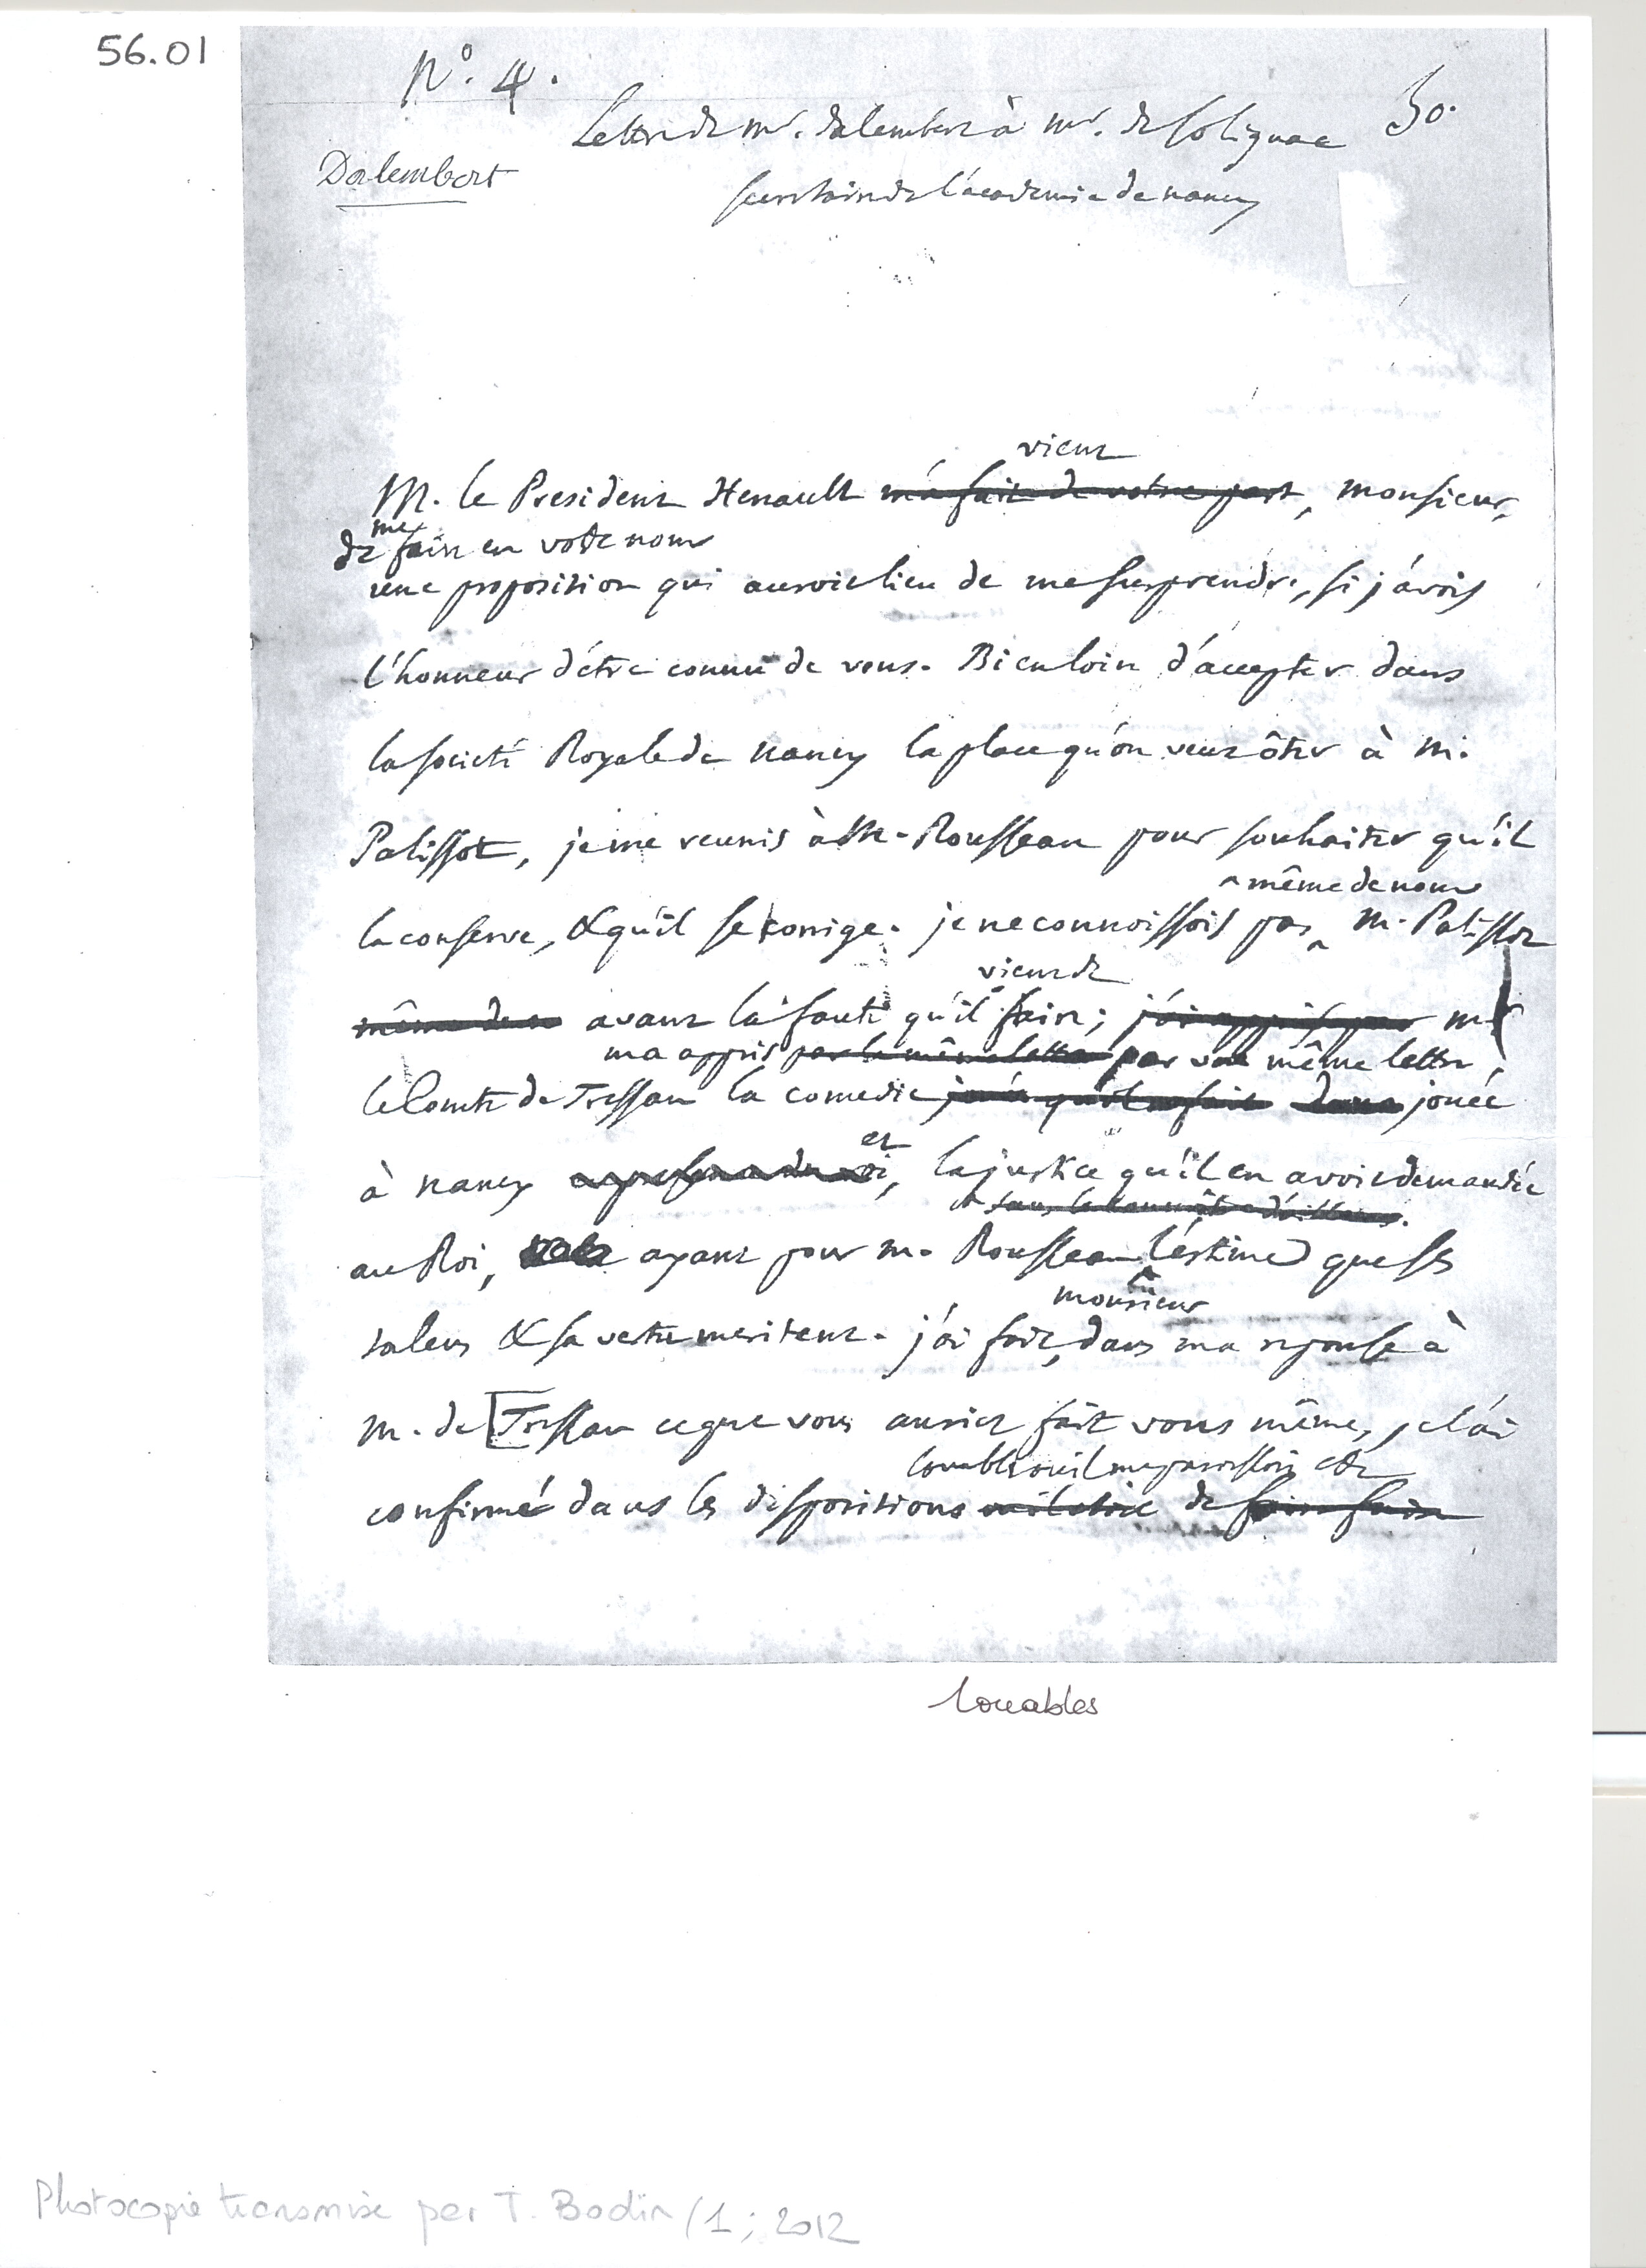 56.01
N°. 4.
Lettre de mr. dalembert à mr. de Solignac
30.
Dalembert
secretaire de l'academie de nancy
vient
M. le President Henault m'a fait de votre part, monsieur,
de me faire en votre nom
une proposition qui auroit lieu de me surprendre, si j'avois
l'honneur d'être connu de vous. Bien loin d'accepter dans
la societé Royale de nancy la place qu'on veut ôter à M.
Palissot, je me reunis à M. Rousseau pour souhaiter qu'il
même de nom
la conserve, & qu'il se corrige. je ne connoissois pas M. Palissot
vient de
même de avant la faute qu'il faire; j'ai appris par mr
m'a appris par la même lettre par une même lettre,
le Comte de Tressan la comedie jouée qu'il a faite dans jouée
et
à nancy, la justice qu'il en avoit demandée
& sans le connoître d'ailleurs.
au Roi, ayant pour m. Rousseau l'estime que ses
monsieur
talens & sa vertu meritent. j'ai fait, dans ma reponse à
m. de Tressan ce que vous auriez fait vous même, je l'ai
louables où il me paroissoit etre
confirmé dans les dispositions où il etoit de faire
louables
Photocopie transmise par T. Bodin (1; 2012